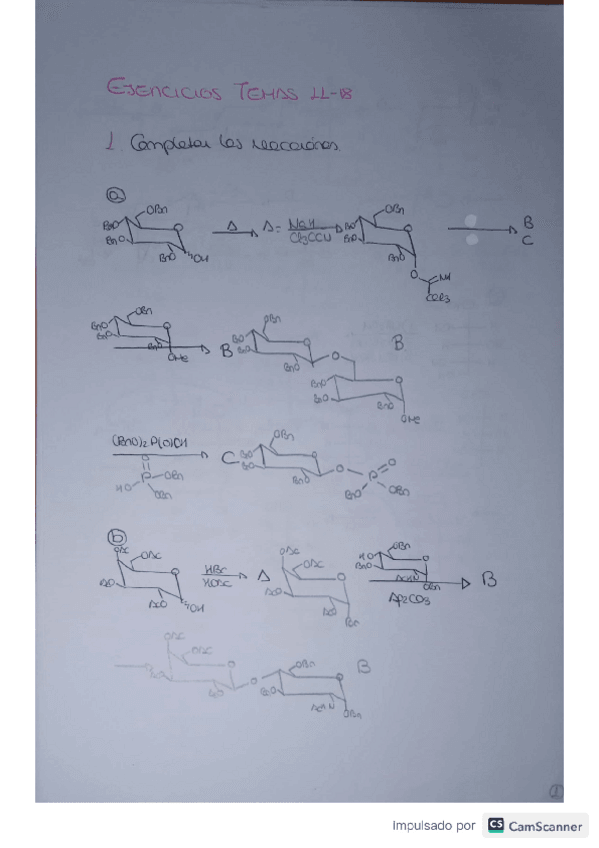 EJERCICIOS TEMAS 11-18
1 Completar las reacciones.
a
OBn
BnO
BnO
BnO
OH
Δ
A =
NaH
Cl3CCN
OBn
BnO
BnO
BnO
O
NH
CCl3
B
C
OBn
BnO
BnO
BnO
OMe
B
OBn
BnO
BnO
BnO
O
BnO
BnO
BnO
OMe
B
(BnO)2P(O)OH
O
HO-P-OBn
OBn
C
OBn
BnO
BnO
BnO
O
P
O
BnO
OBn
b
OAc
OAc
AcO
AcO
OH
HBr
HOAc
A
OAc
OAc
AcO
AcO
Br
HO
OBn
BnO
AcHN
OBn
Ag2CO3
B
OAc
OAc
O
OBn
BnO
AcHN
OBn
B
1
Impulsado por CS CamScanner